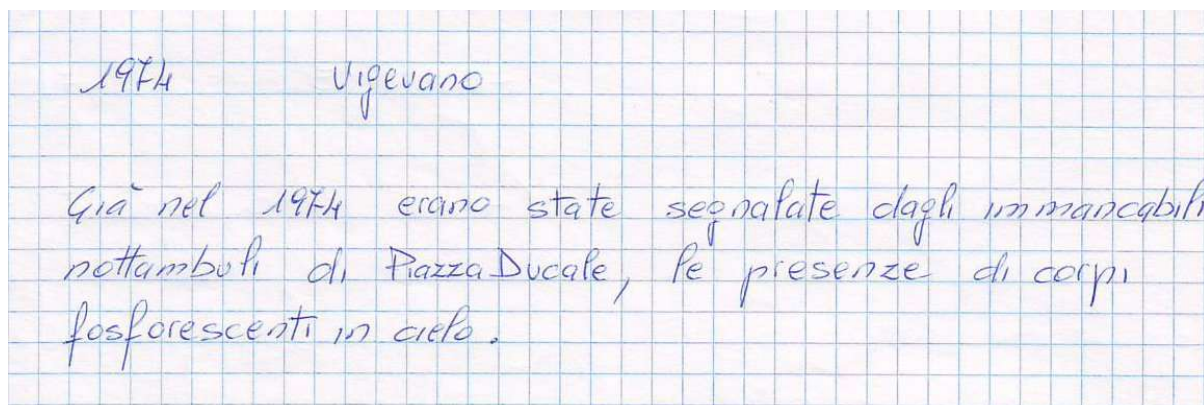 1974 Vigevano
Già nel 1974 erano state segnalate dagli immancabili
nottambuli di Piazza Ducale, le presenze di corpi
fosforescenti in cielo.